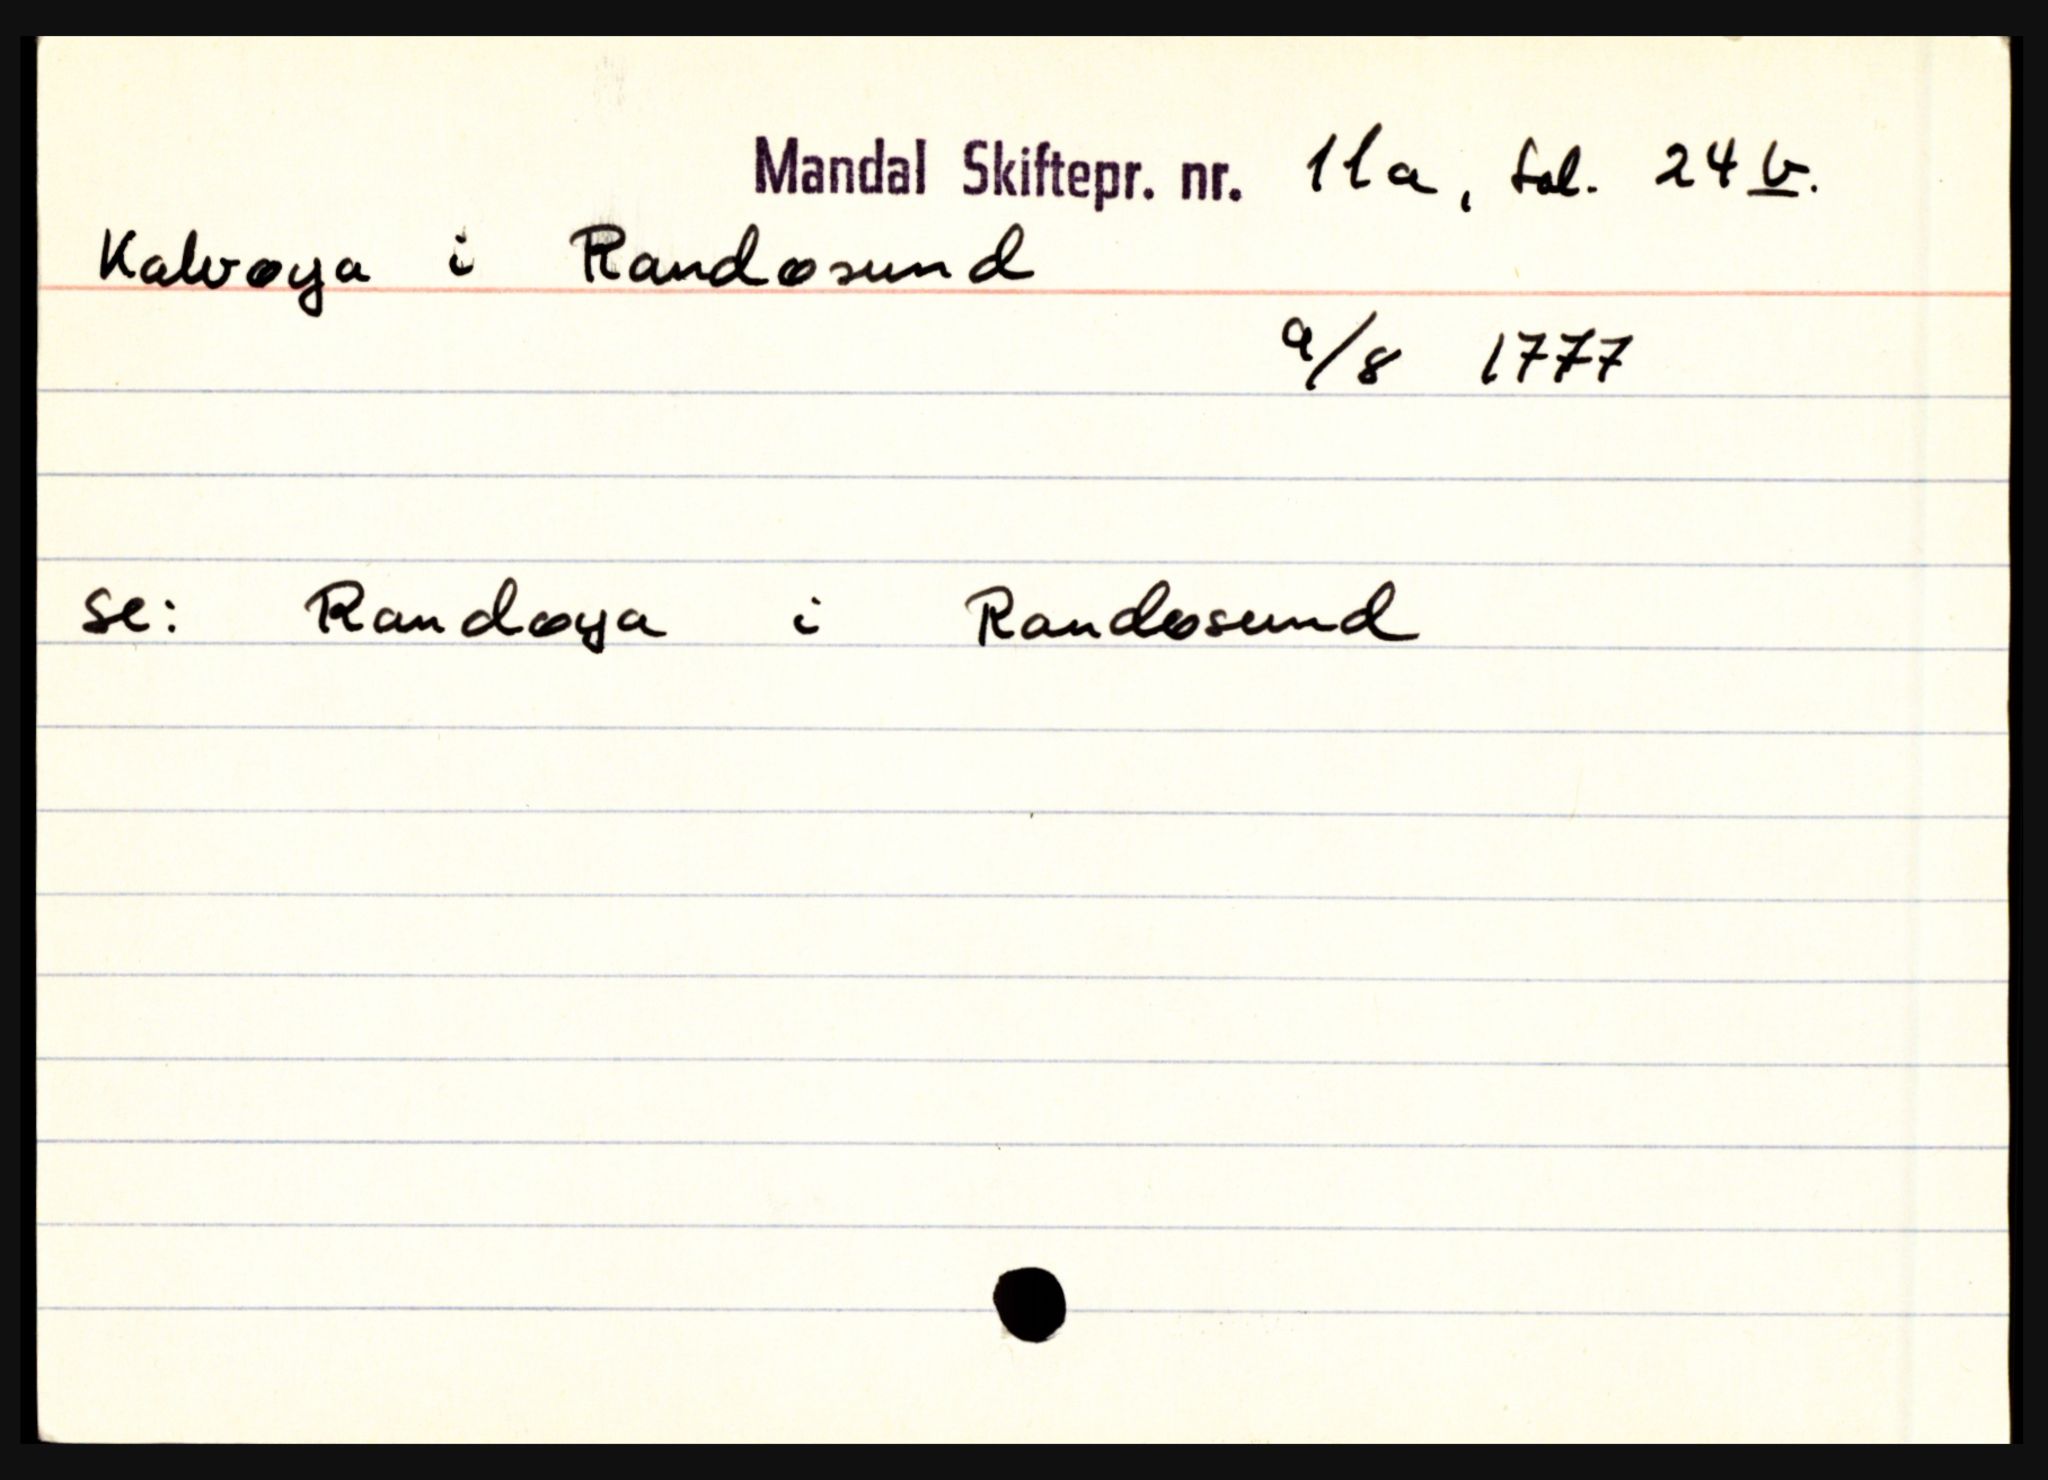 Mandal Skiftepr. nr. 11a, fol. 24 b.
Kalvøya i Randøsund
9/8 1777
se: Randøya i Randøsund